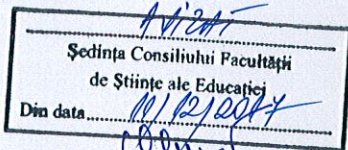 AVIZAT
Ședința Consiliului Facultății
de Științe ale Educației
Din data 11/12/2017